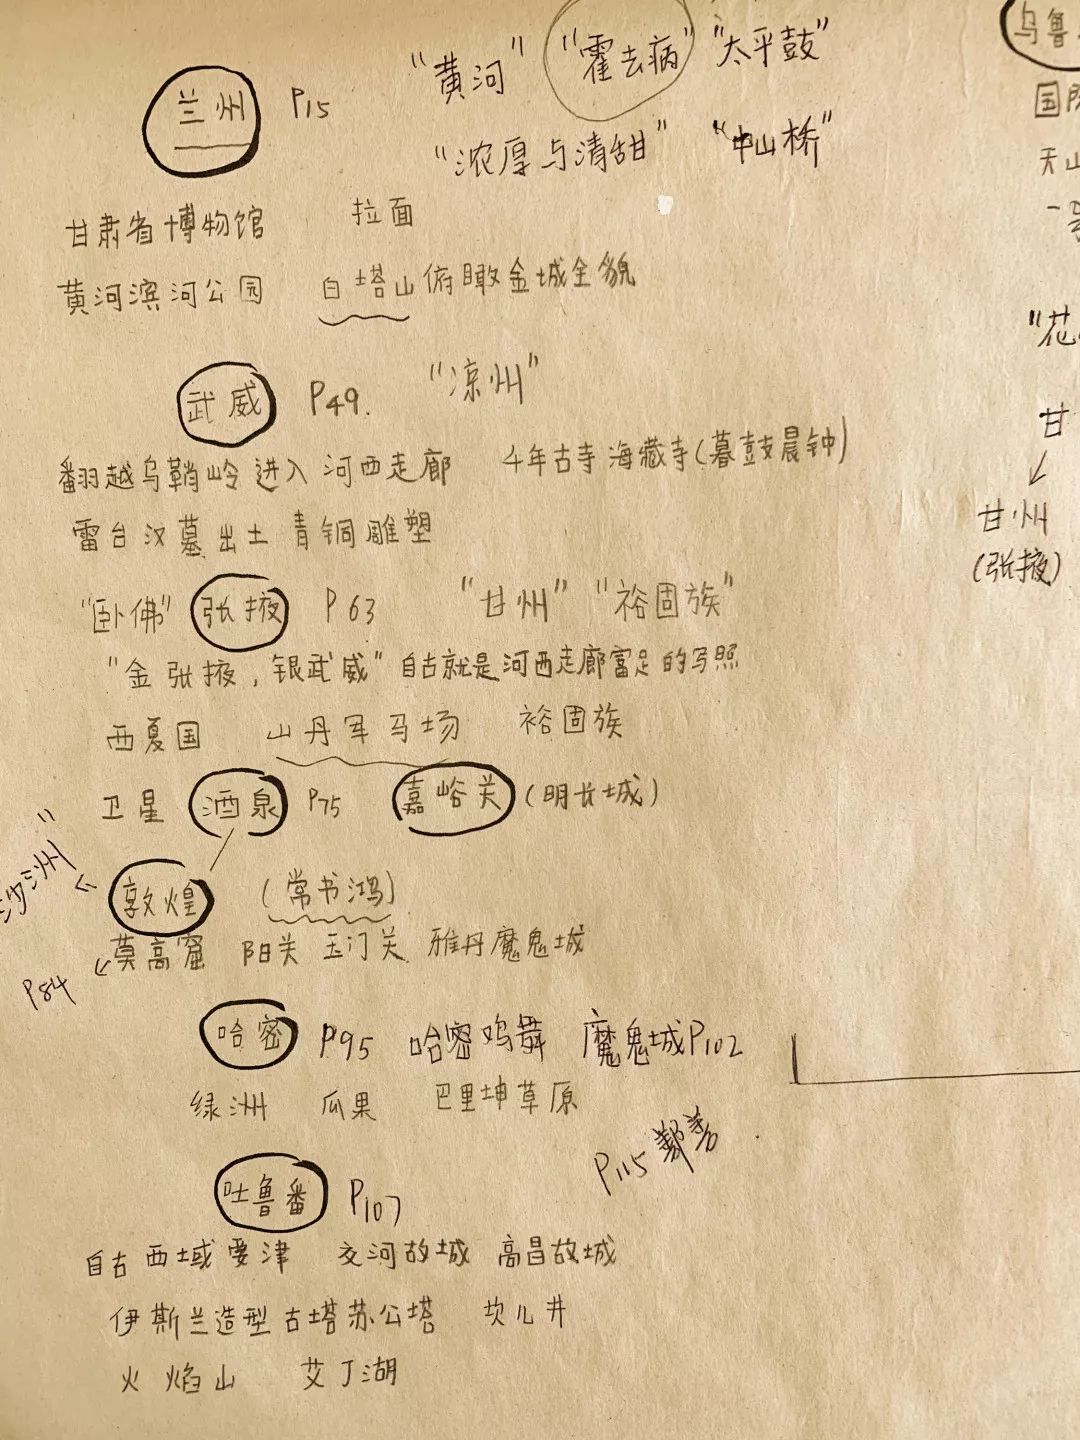 兰州 P15 "黄河" "霍去病" "太平鼓"
"浓厚与清甜" "中山桥"
甘肃省博物馆 拉面
黄河滨河公园 白塔山俯瞰金城全貌
武威 P49. "凉州"
翻越乌鞘岭进入河西走廊 千年古寺海藏寺(暮鼓晨钟)
雷台汉墓出土青铜雕塑
"卧佛" 张掖 P63 "甘州" "裕固族"
"金张掖,银武威"自古就是河西走廊富足的写照
西夏国 山丹军马场 裕固族
卫星 酒泉 P75 嘉峪关(明长城)
"沙洲" 敦煌 (常书鸿)
P84 莫高窟 阳关 玉门关 雅丹魔鬼城
哈密 P95 哈密鸡舞 魔鬼城P102
绿洲 瓜果 巴里坤草原
P115鄯善
吐鲁番 P107
自古西域要津 交河故城 高昌故城
伊斯兰造型古塔苏公塔 坎儿井
火焰山 艾丁湖
乌鲁
国际
天山
一号
"花
甘
甘州
(张掖)